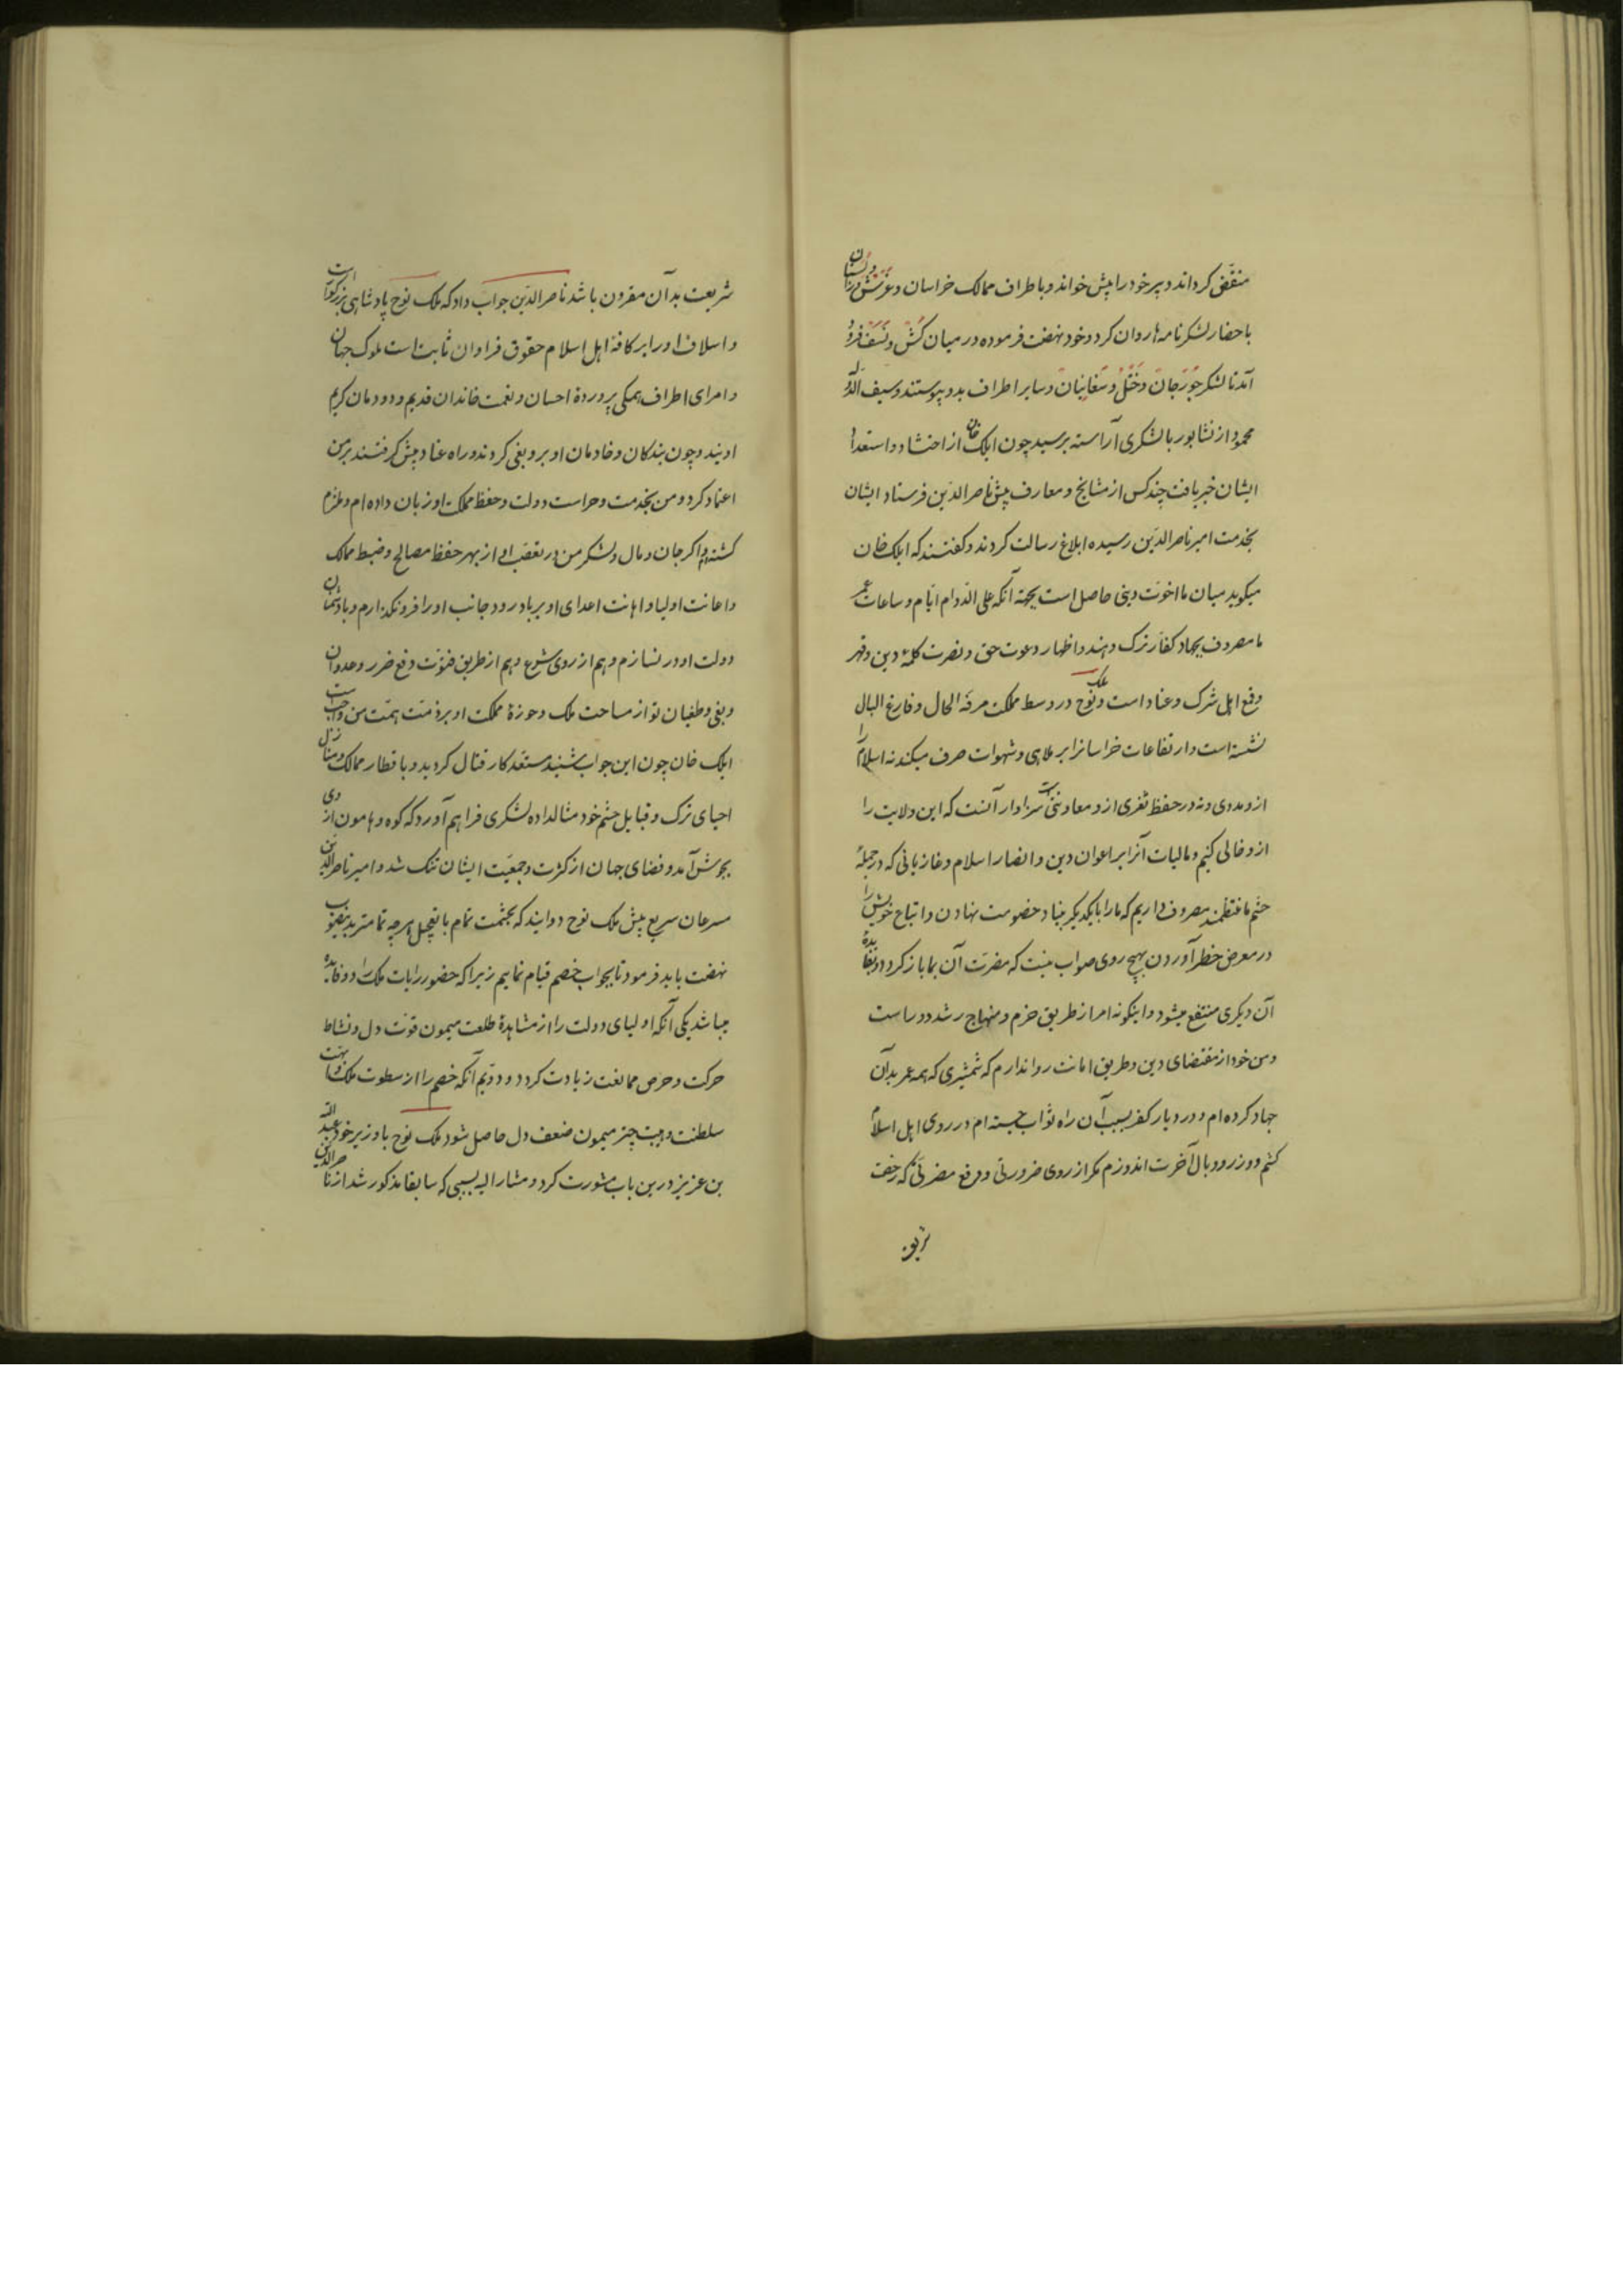 منقّض کرداند و پسر خود را پیش خواند و باطراف ممالک خراسان و غرشش و زاولستان
باحضار لشکر نامه‌ها روان کرد و خود نهضت فرموده در میان کش و نسف فرود
آمد تا لشکر جوزجان و ختّل و صغانیان و سایر اطراف بدو پیوستند و سیف الدوله
محمود از نشابور با لشکری آراسته برسید چون ایلک خان از احتشاد و استعداد
ایشان خبر یافت چند کس از مشایخ و معارف پیش ناصر الدین فرستاد ایشان
بخدمت امیر ناصر الدین رسیده ابلاغ رسالت کردند و گفتند که ایلک خان
میکوید میان ما اخوّت دینی حاصل است بجهة آنکه علی الدوام ایّام و ساعات عمر
ما مصروف بجهاد کفّار ترک و هند و اظهار دعوت حق و نصرت کلمهٔ دین و قهر
و قمع اهل شرک و عناد است و ملک نوح در وسط مملکت مرفّه الحال و فارغ البال
نشسته است و ارتفاعات خراسانرا بر ملاهی و شهوات صرف میکند نه اسلام را
ازو مددی و نه در حفظ ثغری ازو معاونتی است سزاوار آنست که این ولایت را
ازو خالی کنیم و مالیات آنرا بر اعوان دین و انصار اسلام و غازیانی که در جملهٔ
حشم ما منتظمند مصروف داریم که ما را با یکدیگر بنیاد خصومت نهادن و اتباع خویش را
در معرض خطر آوردن بهیچ روی صواب نیست که مضرّت آن بما باز کردد و بفایدهٔ
آن دیکری منتفع میشود و اینکونه امر از طریق حزم و منهاج رشد دور است
و من خود از مقتضای دین و طریق امانت روا ندارم که شمشیری که همه عمر بدآن
جهاد کرده‌ام و در دیار کفر بسبب آن راه ثواب جسته‌ام در روی اهل اسلام
کشم و وزر و وبال آخرت اندوزم مکر از روی ضرورتی و دفع مضرتی که رخصت
شریعت بدآن مقرون باشد ناصر الدین جواب داد که ملک نوح پادشاهی بزرکوار است
و اسلاف او را بر کافهٔ اهل اسلام حقوق فراوان ثابت است ملوک جهان
و امرای اطراف همکی پروردهٔ احسان و نعمت خاندان قدیم و دودمان کریم
اویند و چون بندکان و خادمان او برو بغی کردند و راه عناد پیش کرفتند بر من
اعتماد کرد و من بخدمت و حراست دولت و حفظ مملکت او زبان داده‌ام و ملتزم
کشته‌ام و اکر جان و مال و لشکر من در تعصّب او از بهر حفظ مصالح و ضبط ممالک
و اعانت اولیا و اهانت اعدای او بر باد رود جانب او را فرو نکذارم و با دشمنان
دولت او در نسازم و هم از روی شرع و هم از طریق فتوّت دفع ضرر و عدوان
و بغی و طغیان تو از ساحت ملک و حوزهٔ مملکت او بر ذمّت همّت من واجب است
ایلک خان چون این جواب شنید مستعد کار قتال کردید و باقطار ممالک و منازل
احیای ترک و قبایل حشم خود مثال داده لشکری فراهم آورد که کوه و هامون از وی
بجوش آمد و فضای جهان از کثرت و جمعیّت ایشان تنک شد و امیر ناصر الدین
مسرعان سریع پیش ملک نوح دوانید که بحشمت تمام بتعجیل هر چه تمامتر بدینصوب
نهضت باید فرمود تا بجواب خصم قیام نماییم زیرا که حضور رایات ملک را دو فایده
میباشد یکی آنکه اولیای دولت را از مشاهدهٔ طلعت میمون قوّت دل و نشاط
حرکت و حرص ممانعت زیادت کردد و دویّم آنکه خصم را از سطوت ملک و ابهّت
سلطنت و هیبت چتر میمون ضعف دل حاصل شود ملک نوح با وزیر خود عبد الله
بن عزیز درین باب مشورت کرد و مشار الیه بسببی که سابقا مذکور شد از ناصر الدین